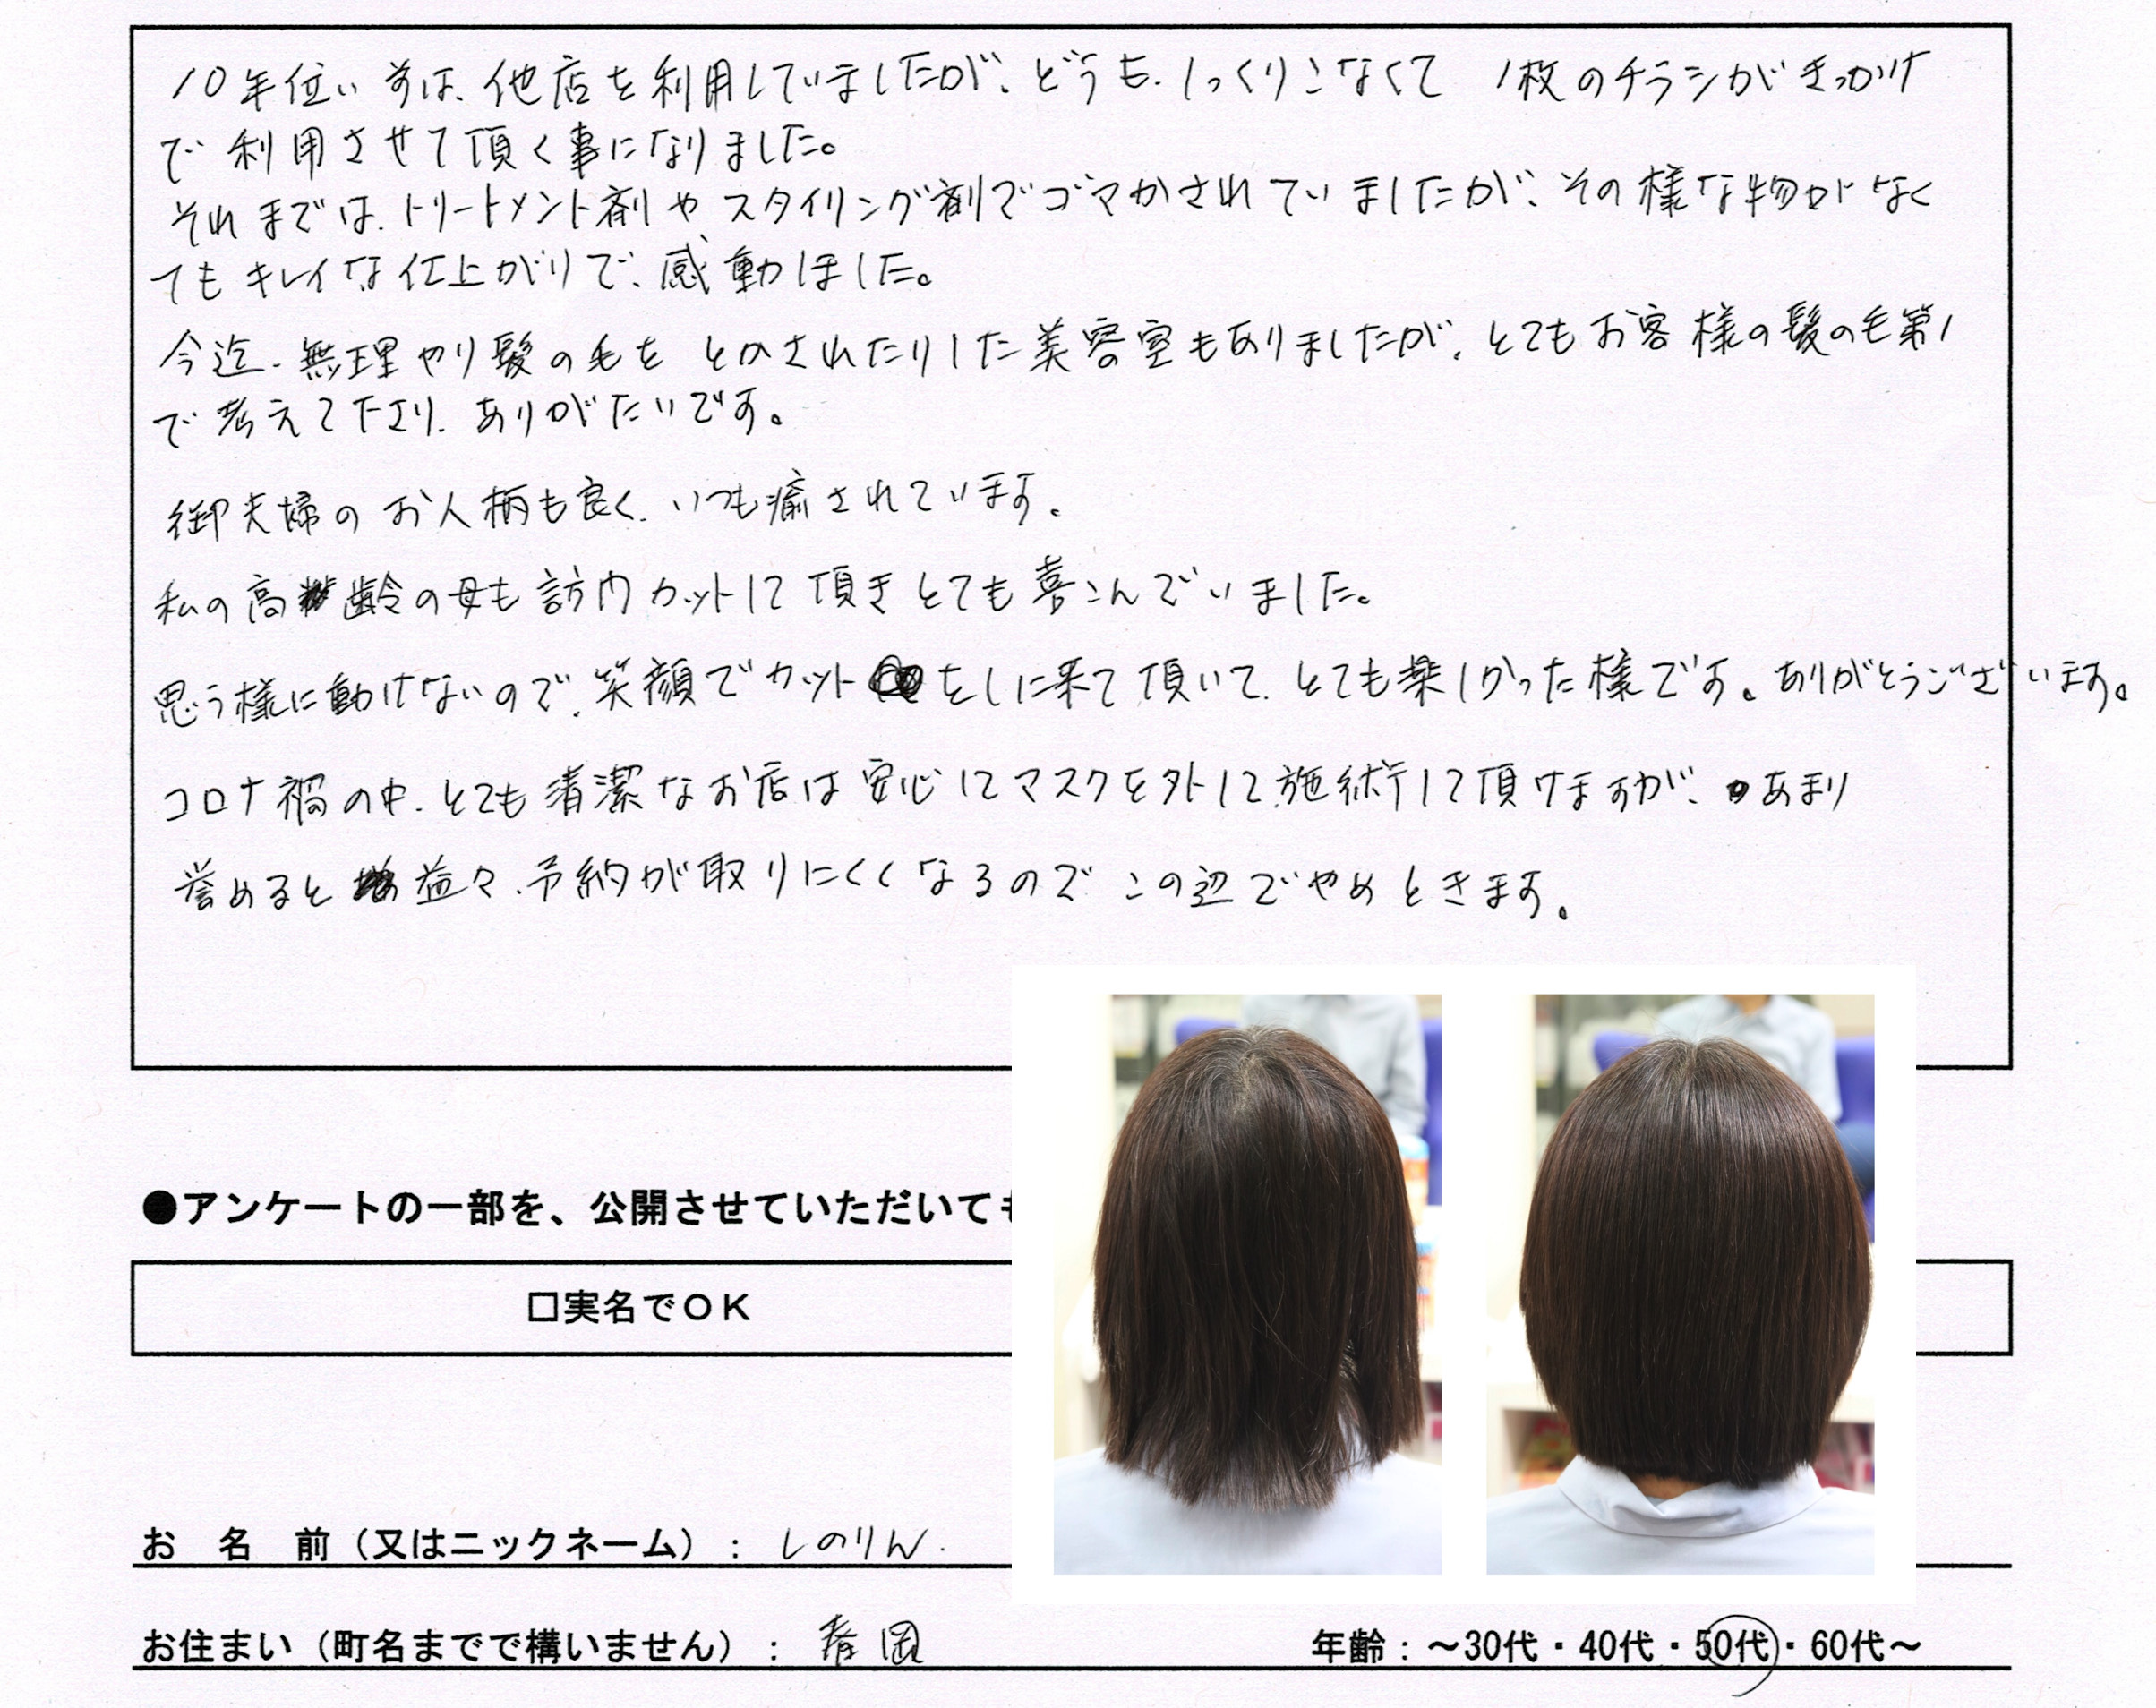 10年位い前は、他店を利用していましたが、どうも、しっくりこなくて 1枚のチラシがきっかけ
で利用させて頂く事になりました。
それまでは、トリートメント剤やスタイリング剤でゴマかされていましたが、その様な物がなく
てもキレイな仕上がりで、感動しました。
今迄、無理やり髪の毛をとかされたりした美容室もありましたが、とてもお客様の髪の毛第1
で考えて下さり、ありがたいです。
御夫婦のお人柄も良く、いつも癒されています。
私の高齢の母も訪問カットして頂きとても喜こんでいました。
思う様に動けないので、笑顔でカットをしに来て頂いて、とても楽しかった様です。ありがとうございます。
コロナ禍の中、とても清潔なお店は安心してマスクを外して施術して頂けますが、あまり
誉めると益々、予約が取りにくくなるのでこの辺でやめときます。
●アンケートの一部を、公開させていただいても
□実名でOK
お名前（又はニックネーム）：しのりん
お住まい（町名までで構いません）：春岡 年齢：～30代・40代・50代・60代～